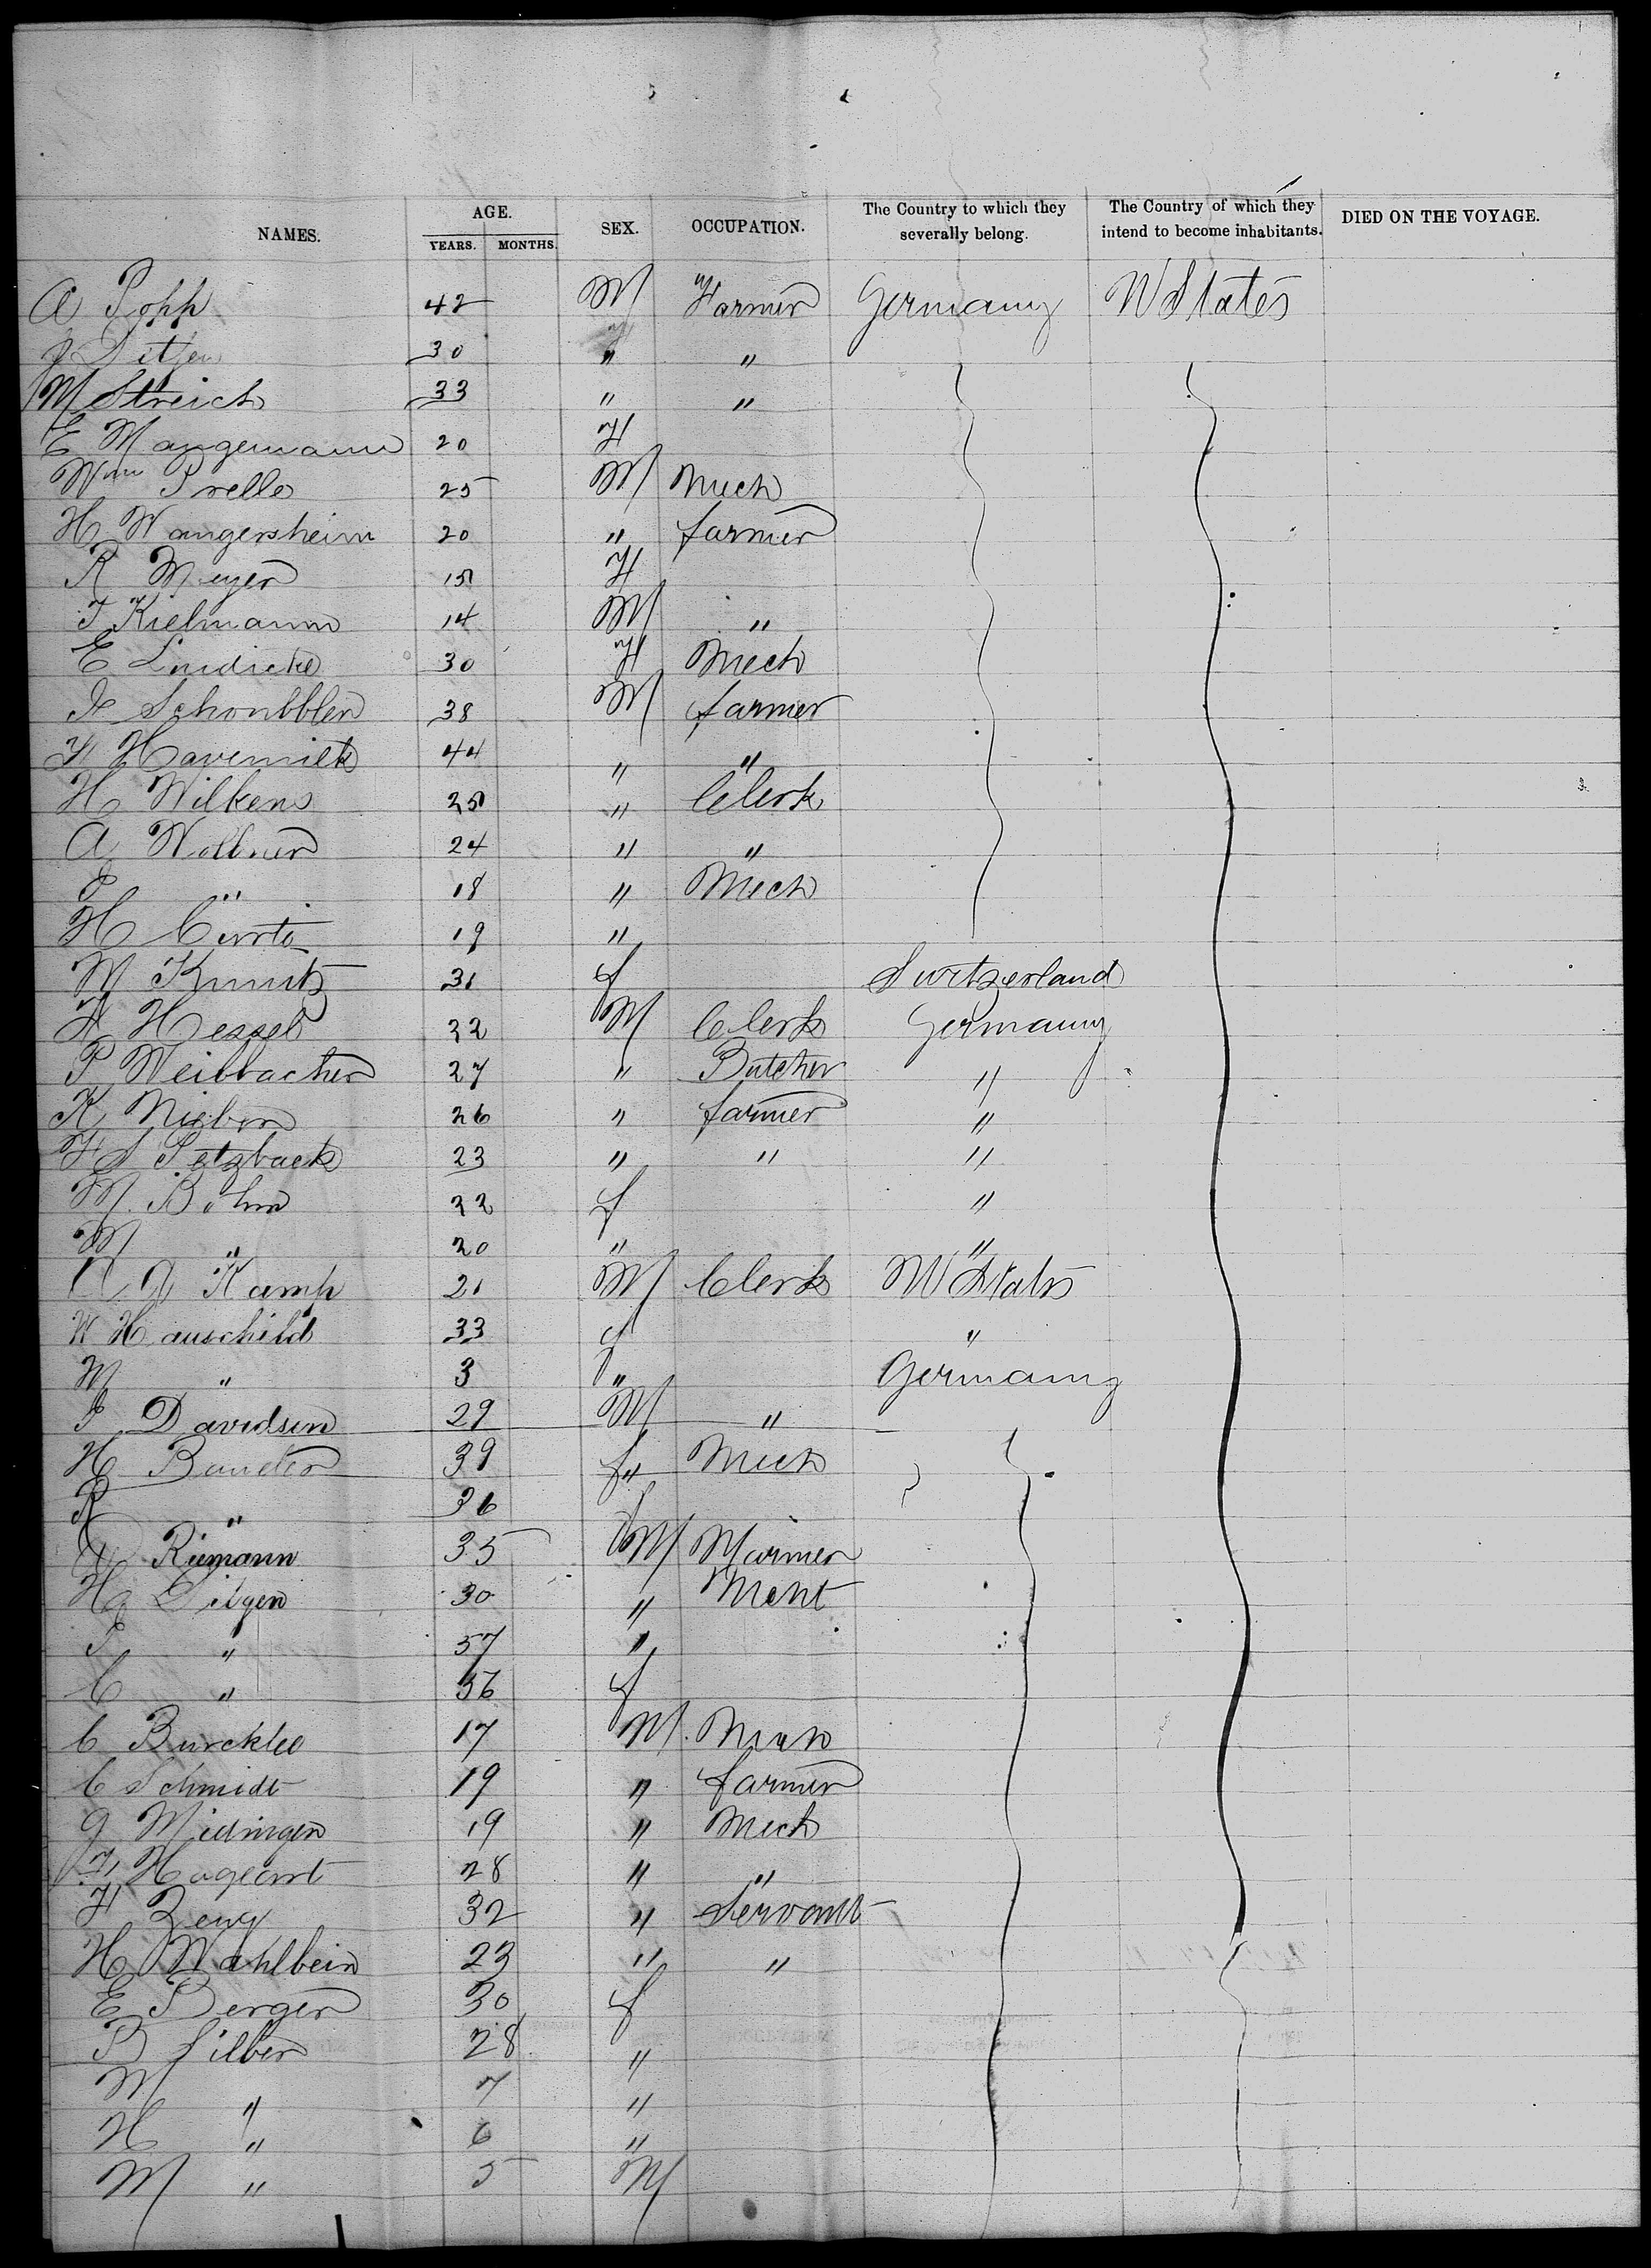 NAMES. AGE. YEARS. MONTHS. SEX. OCCUPATION. The Country to which they severally belong. The Country of which they intend to become inhabitants. DIED ON THE VOYAGE.
A Popp 42 M Farmer Germany U States
J Ditjen 30 " "
M Streich 33 " "
E Mangemann 20 F
Wm Prelle 25 M Mech
H Wangersheim 20 " farmer
R Meyer 15 F
F Kielmann 14 M "
E Lindicke 30 F Mech
38 M farmer
44 " "
H Wilkens 25 " Clerk
A Wollner 24 " "
" 18 " Mech
H Curto 19 "
M 31 f Switzerland
H Hessel 22 M Clerk Germany
P Weibbacher 27 " Butcher "
K 26 " farmer "
23 " " "
M. Bohm 22 f "
M " 20 " "
Kamp 21 M Clerk U States
W Hauschild 33 f "
M " 3 " Germany
J Davidsen 29 M "
H 39 f" Mech
R " 36
Riemann 35 M Farmer
H Ditgen 30 " Mcht
" 57 "
C " 56 f
C Burcklee 17 M.
C Schmidt 19 " farmer
G 19 " Mech
28 " "
32 " Servant
H Wahlbein 23 " "
E Berger 30 f
B Silber 28 "
M " 7 "
H " 6 "
M " 5 M